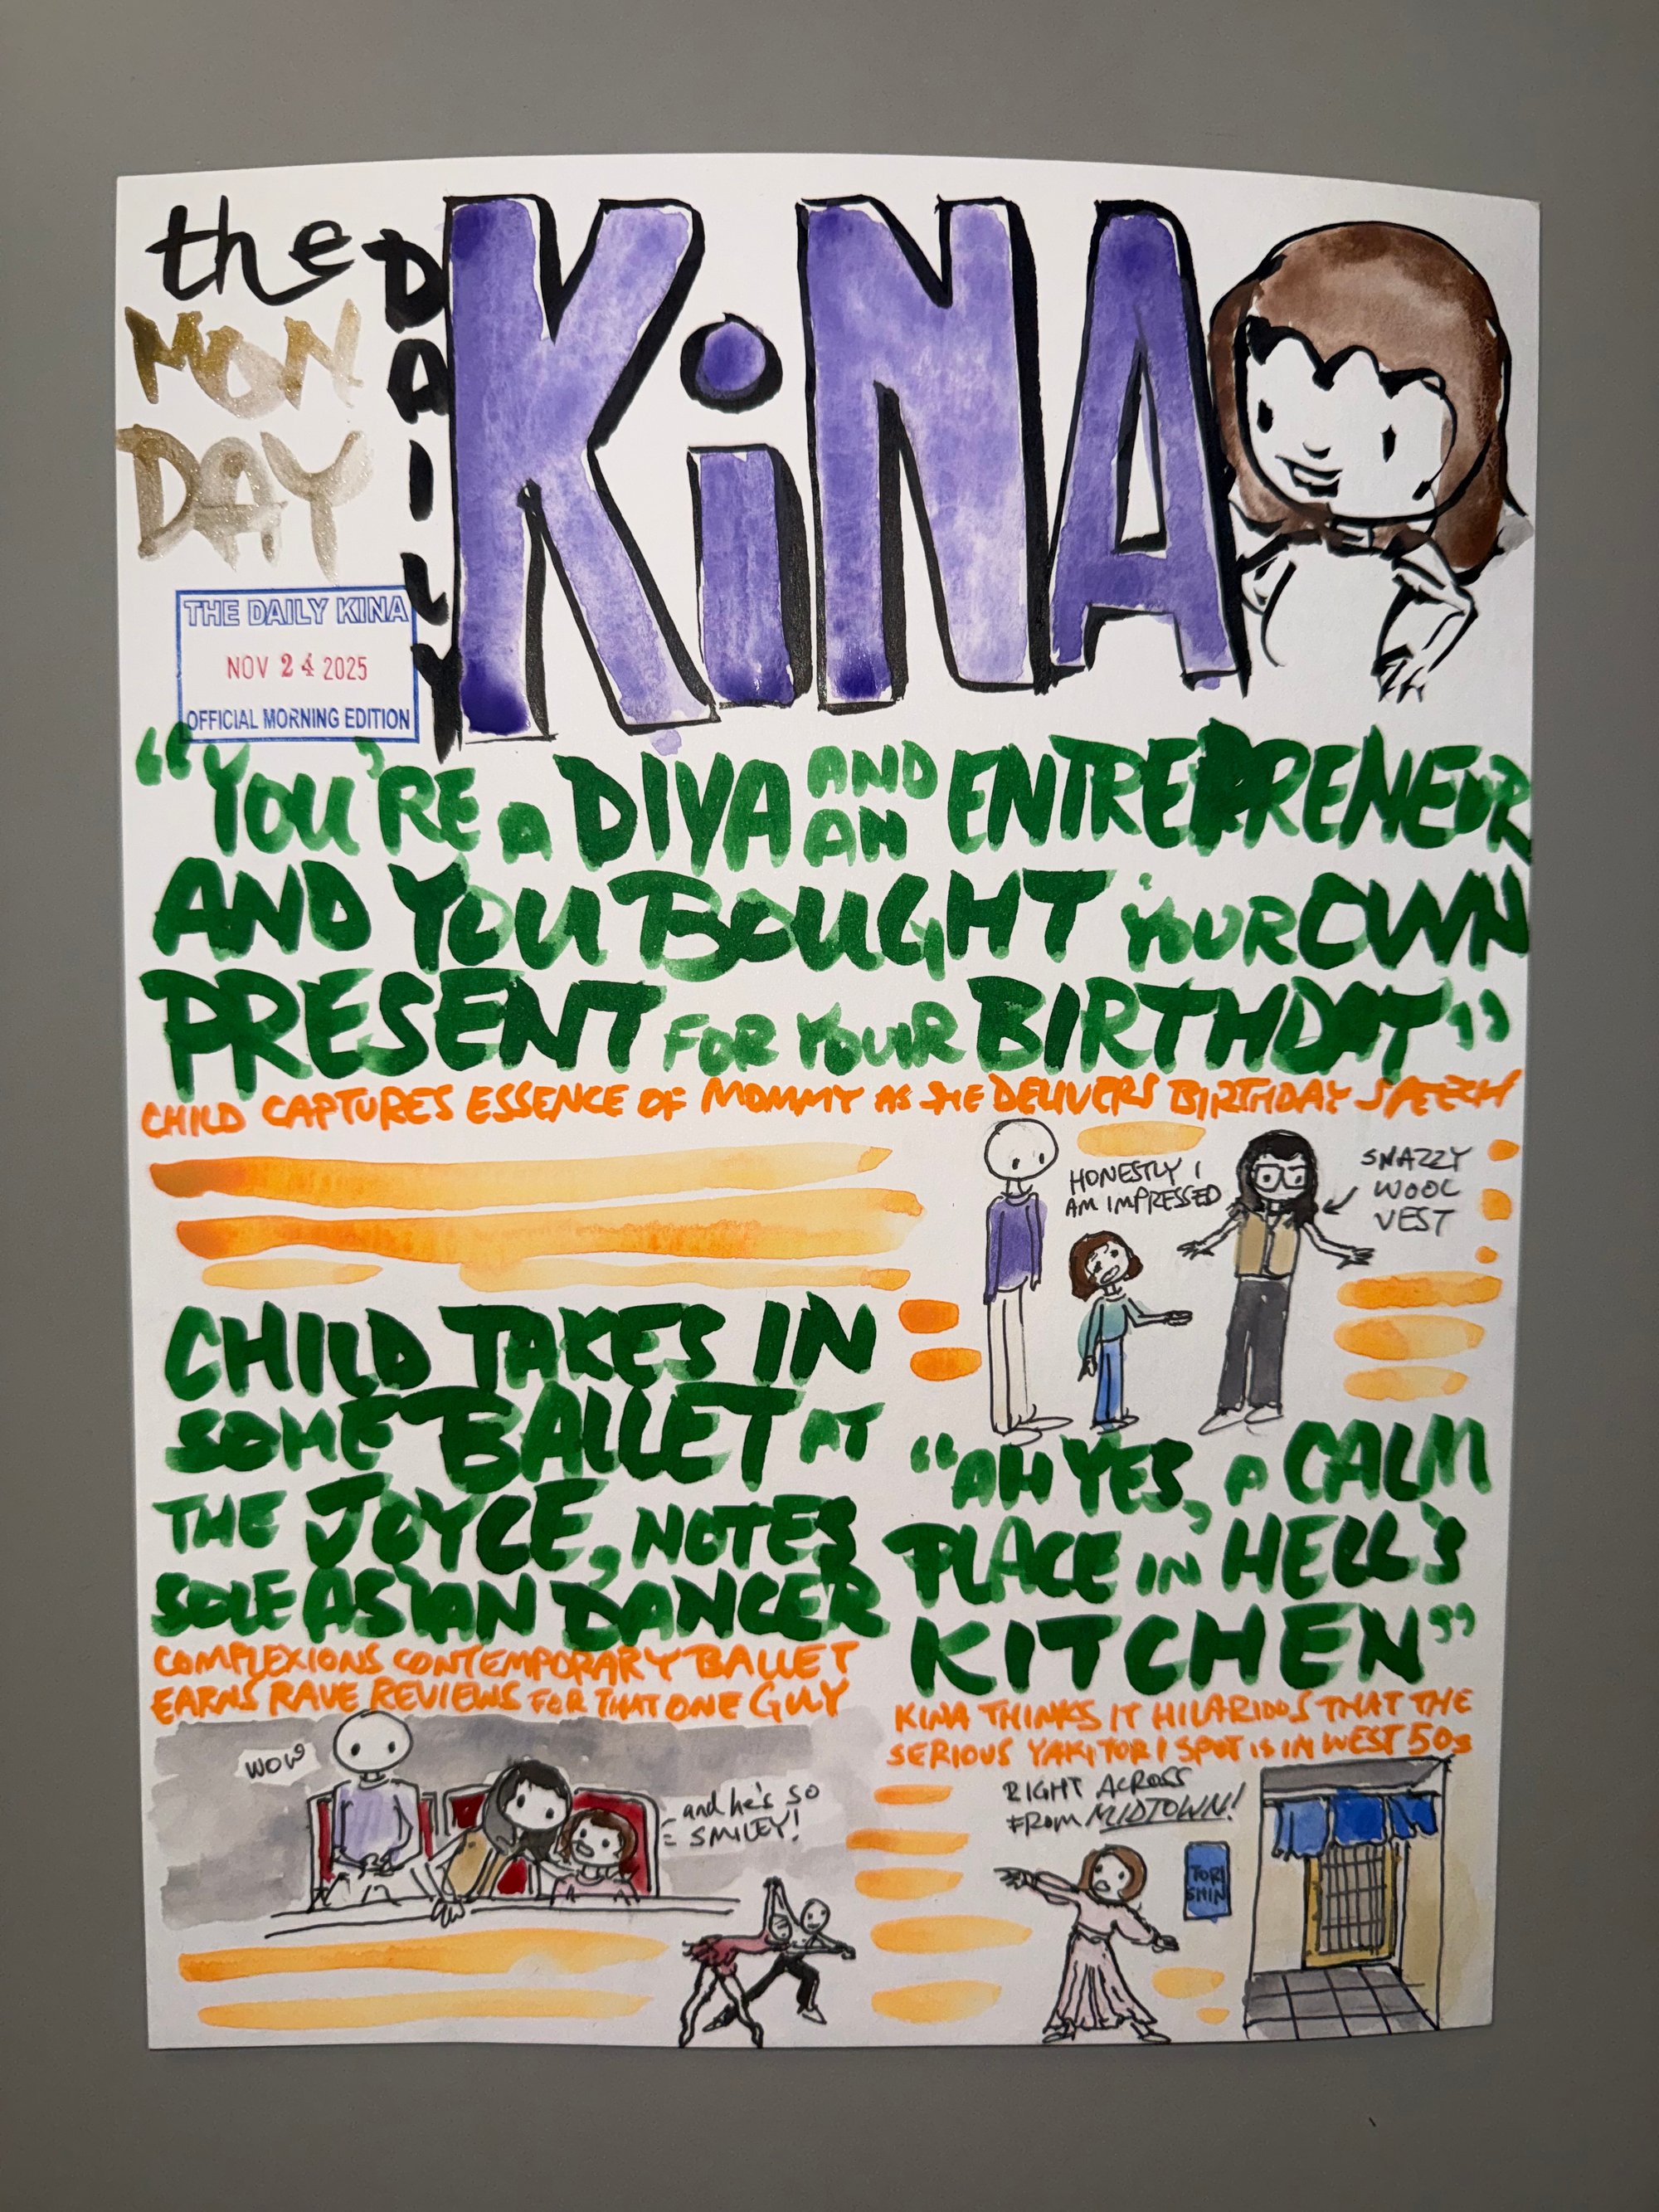 the
MON
DAY
DAILY
KiNA
THE DAILY KINA
NOV 24 2025
OFFICIAL MORNING EDITION
"YOU'RE A DIVA AND AN ENTREPRENEUR
AND YOU BOUGHT YOUR OWN
PRESENT FOR YOUR BIRTHDAY"
CHILD CAPTURES ESSENCE OF MOMMY AS SHE DELIVERS BIRTHDAY SPEECH
HONESTLY I
AM IMPRESSED
SNAZZY
WOOL
VEST
CHILD TAKES IN
SOME BALLET AT
THE JOYCE, NOTES
SOLE ASIAN DANCER
COMPLEXIONS CONTEMPORARY BALLET
EARNS RAVE REVIEWS FOR THAT ONE GUY
WOW
and he's so
SMILEY!
"AH YES, A CALM
PLACE IN HELL'S
KITCHEN"
KINA THINKS IT HILARIOUS THAT THE
SERIOUS YAKITORI SPOT IS IN WEST 50s
RIGHT ACROSS
FROM MIDTOWN!
TORI
SHIN